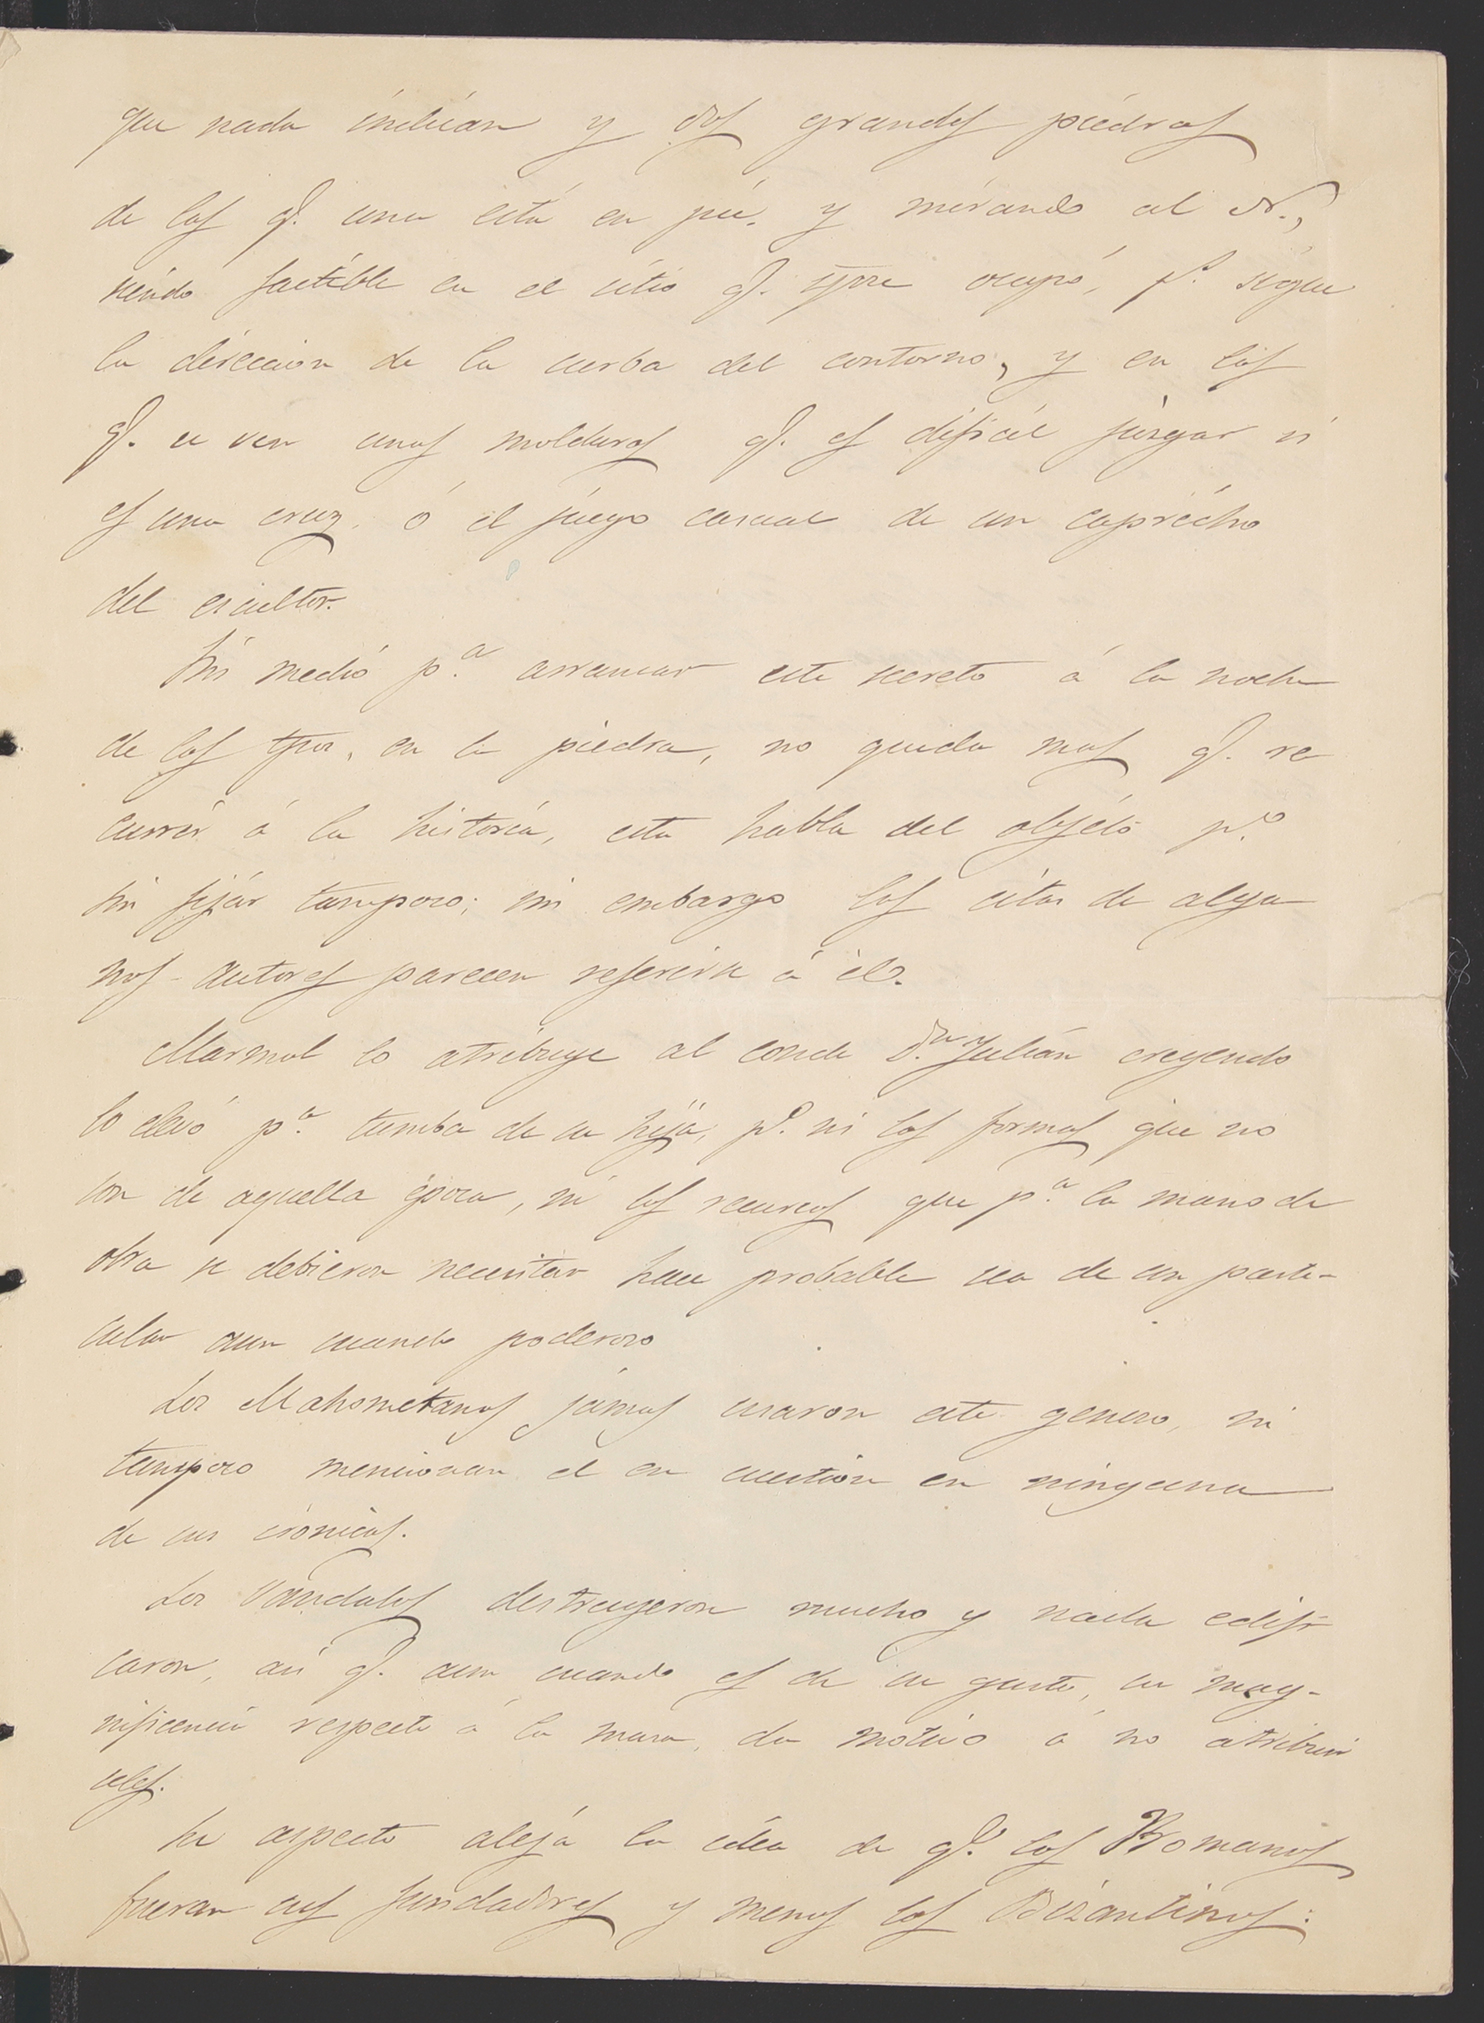 que nada indican y dos grandes piedras
de las q.e una está en pié, y mirando al N.,
siendo factible en el sitio q.e spre ocupó, p.s sigue
la direccion de la curba del contorno, y en las
q.e se ven unas molduras q.e es dificil juzgar si
es una cruz, ó el juego casual de un caprícho
del escultor.
Sin medio p.a arrancar este secreto á la noche
de los tpos, en la piedra, no queda mas q.e re
currir á la historia, esta habla del objeto p.o
sin fijar tampoco; sin embargo las citas de algu
nos autores parecen referirse á él.
Marmol lo atribuye al conde D.n Julian creyendo
lo elevó p.a tumba de su hija, p.o ni las formas que no
son de aquella época, ni los recursos que p.a la mano de
obra se debieron necesitar hace probable sea de un parti-
cular aun cuando poderoso
Los Mahometanos jamas usaron este genero, ni
tampoco mencionan el en cuestion en ninguna
de sus crónicas.
Los Vandalos destruyeron mucho y nada edifi
caron, así q.e aun cuando es de su gusto, su mag-
nificencia respecto á la masa, da motivo á no atribuir
seles.
Su aspecto aleja la idea de q.e los Romanos
fueran sus fundadores y menos los Bizantinos: